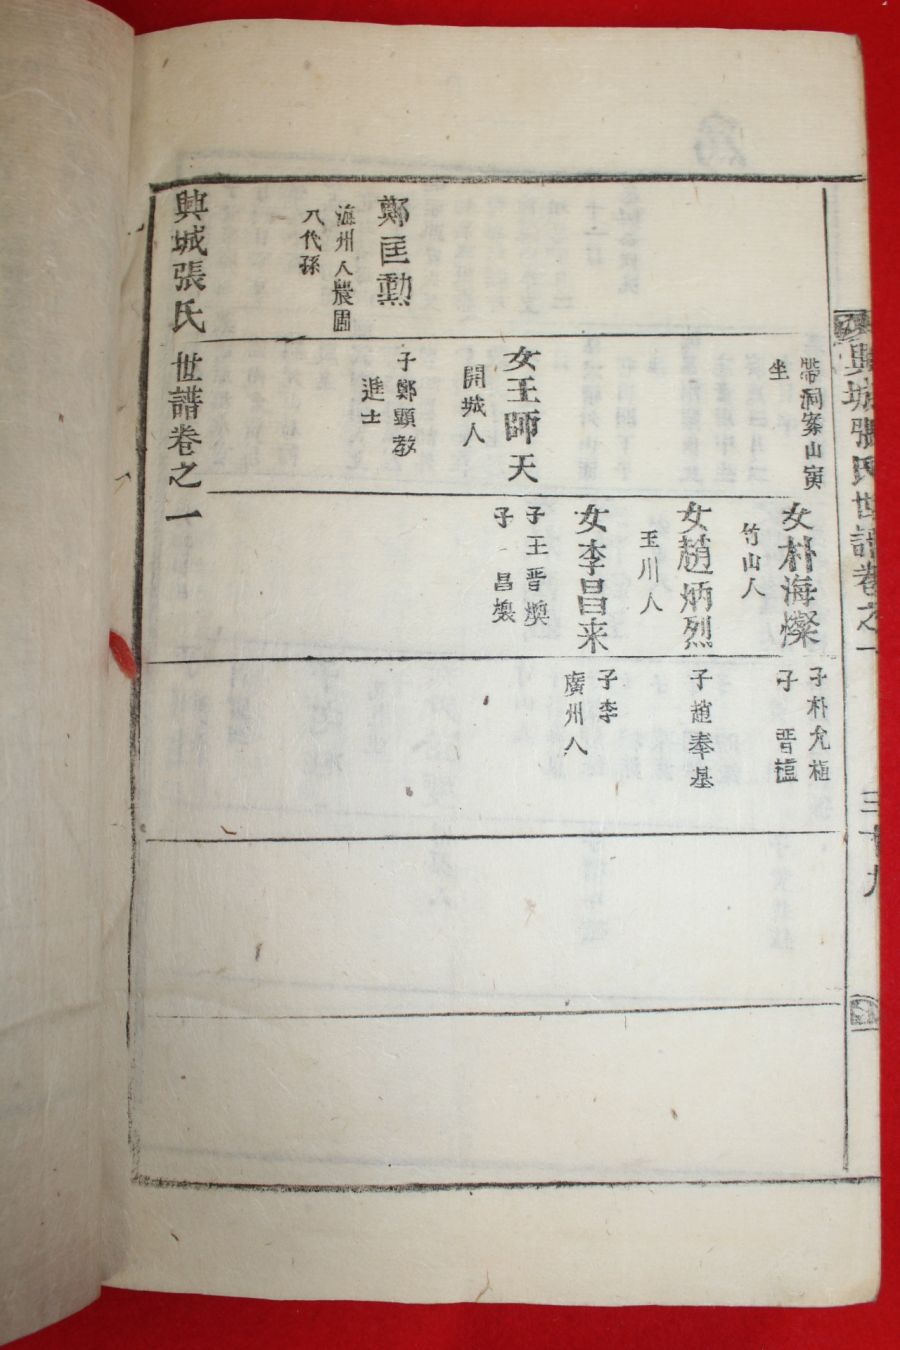 興城張氏世譜卷之一
三十九
帶洞案山寅
坐
女朴海燦
竹山人
子朴允植
子 晋植
女趙炳烈
玉川人
子趙奉基
女李昌来
子李
廣州人
女王師天
開城人
子王晋煥
子 昌
鄭匡勳
海州人農圃
八代孫
子鄭顯教
進士
興城張氏 世譜卷之一